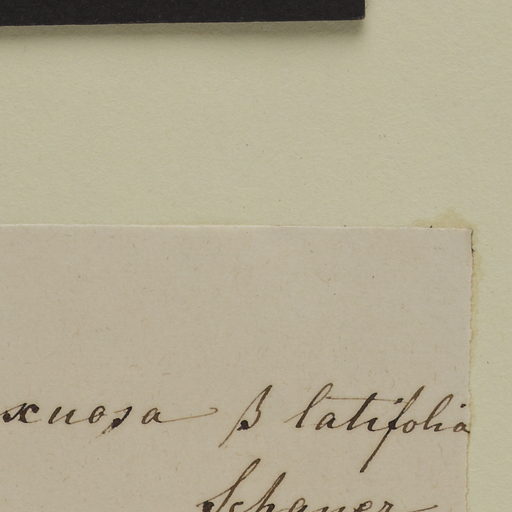 xuosa β latifolia
Schauer